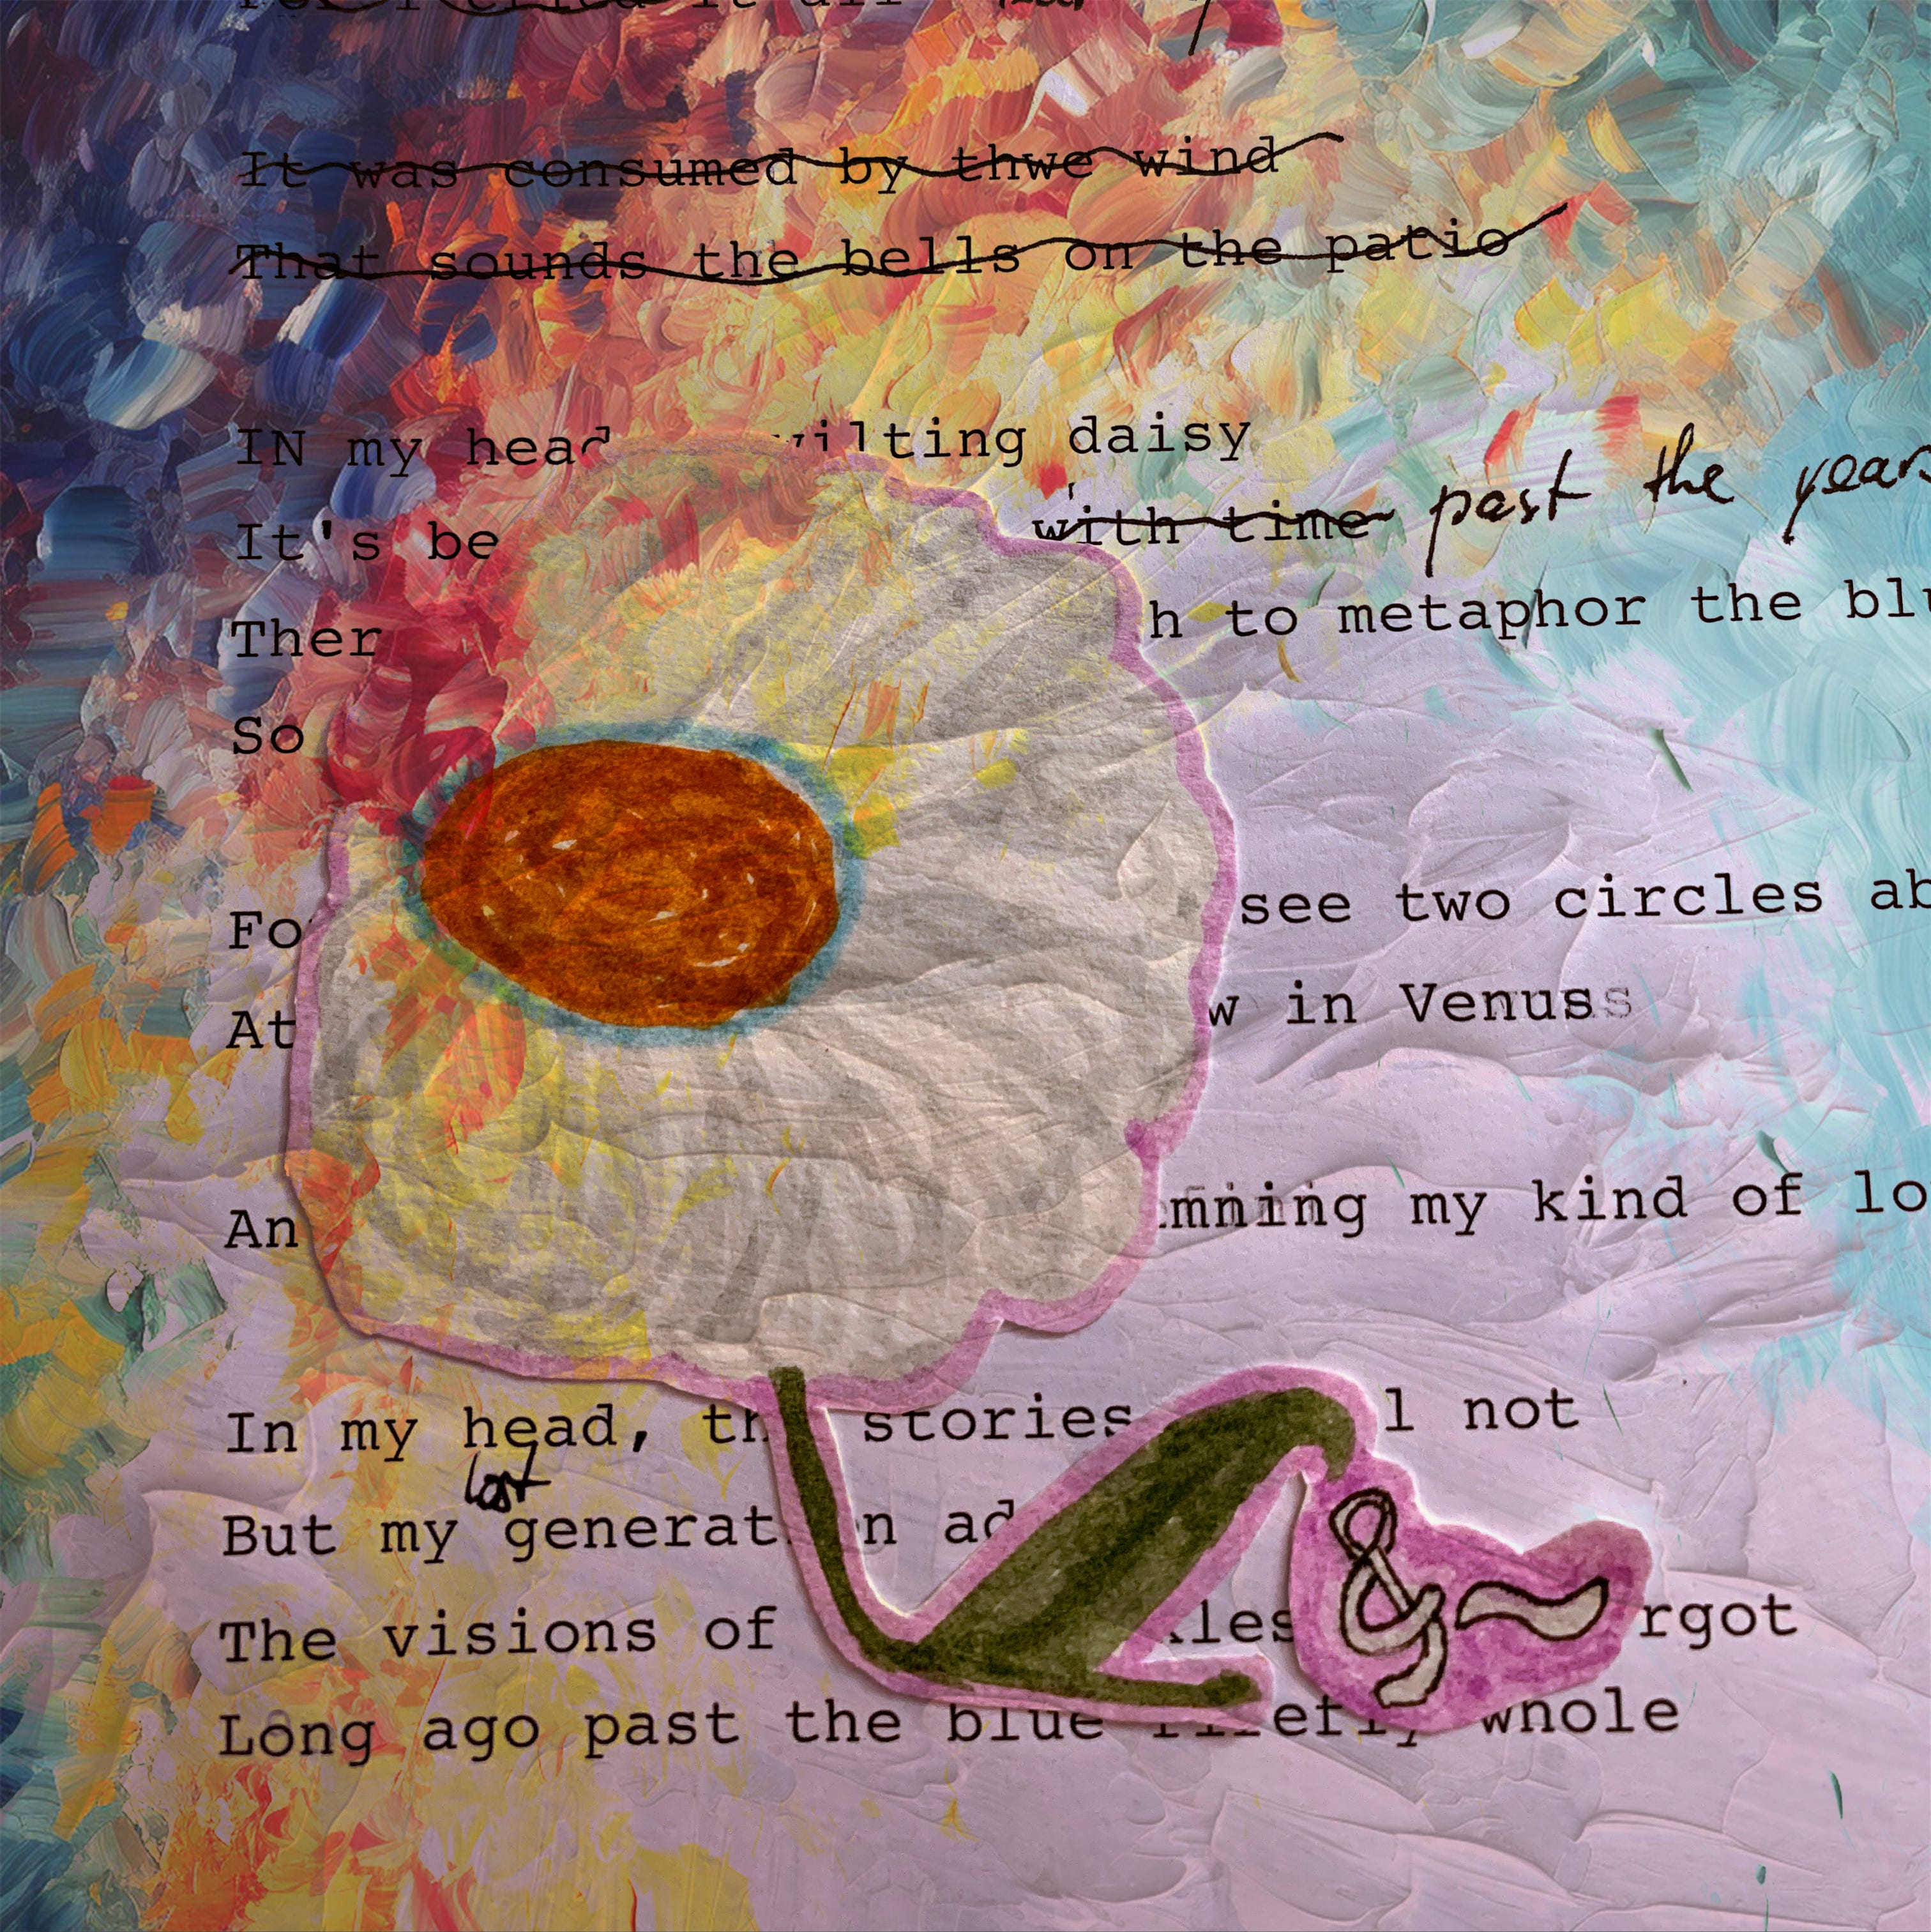 It was consumed by thwe wind
That sounds the bells on the patio
IN my head wilting daisy
It's be with time past the years
Ther h to metaphor the blu
So
Fo see two circles ab
At w in Venuss
An mning my kind of lo
In my head, th stories l not
lost
But my generat n ad
The visions of kles rgot
Long ago past the blue firefly whole
&~